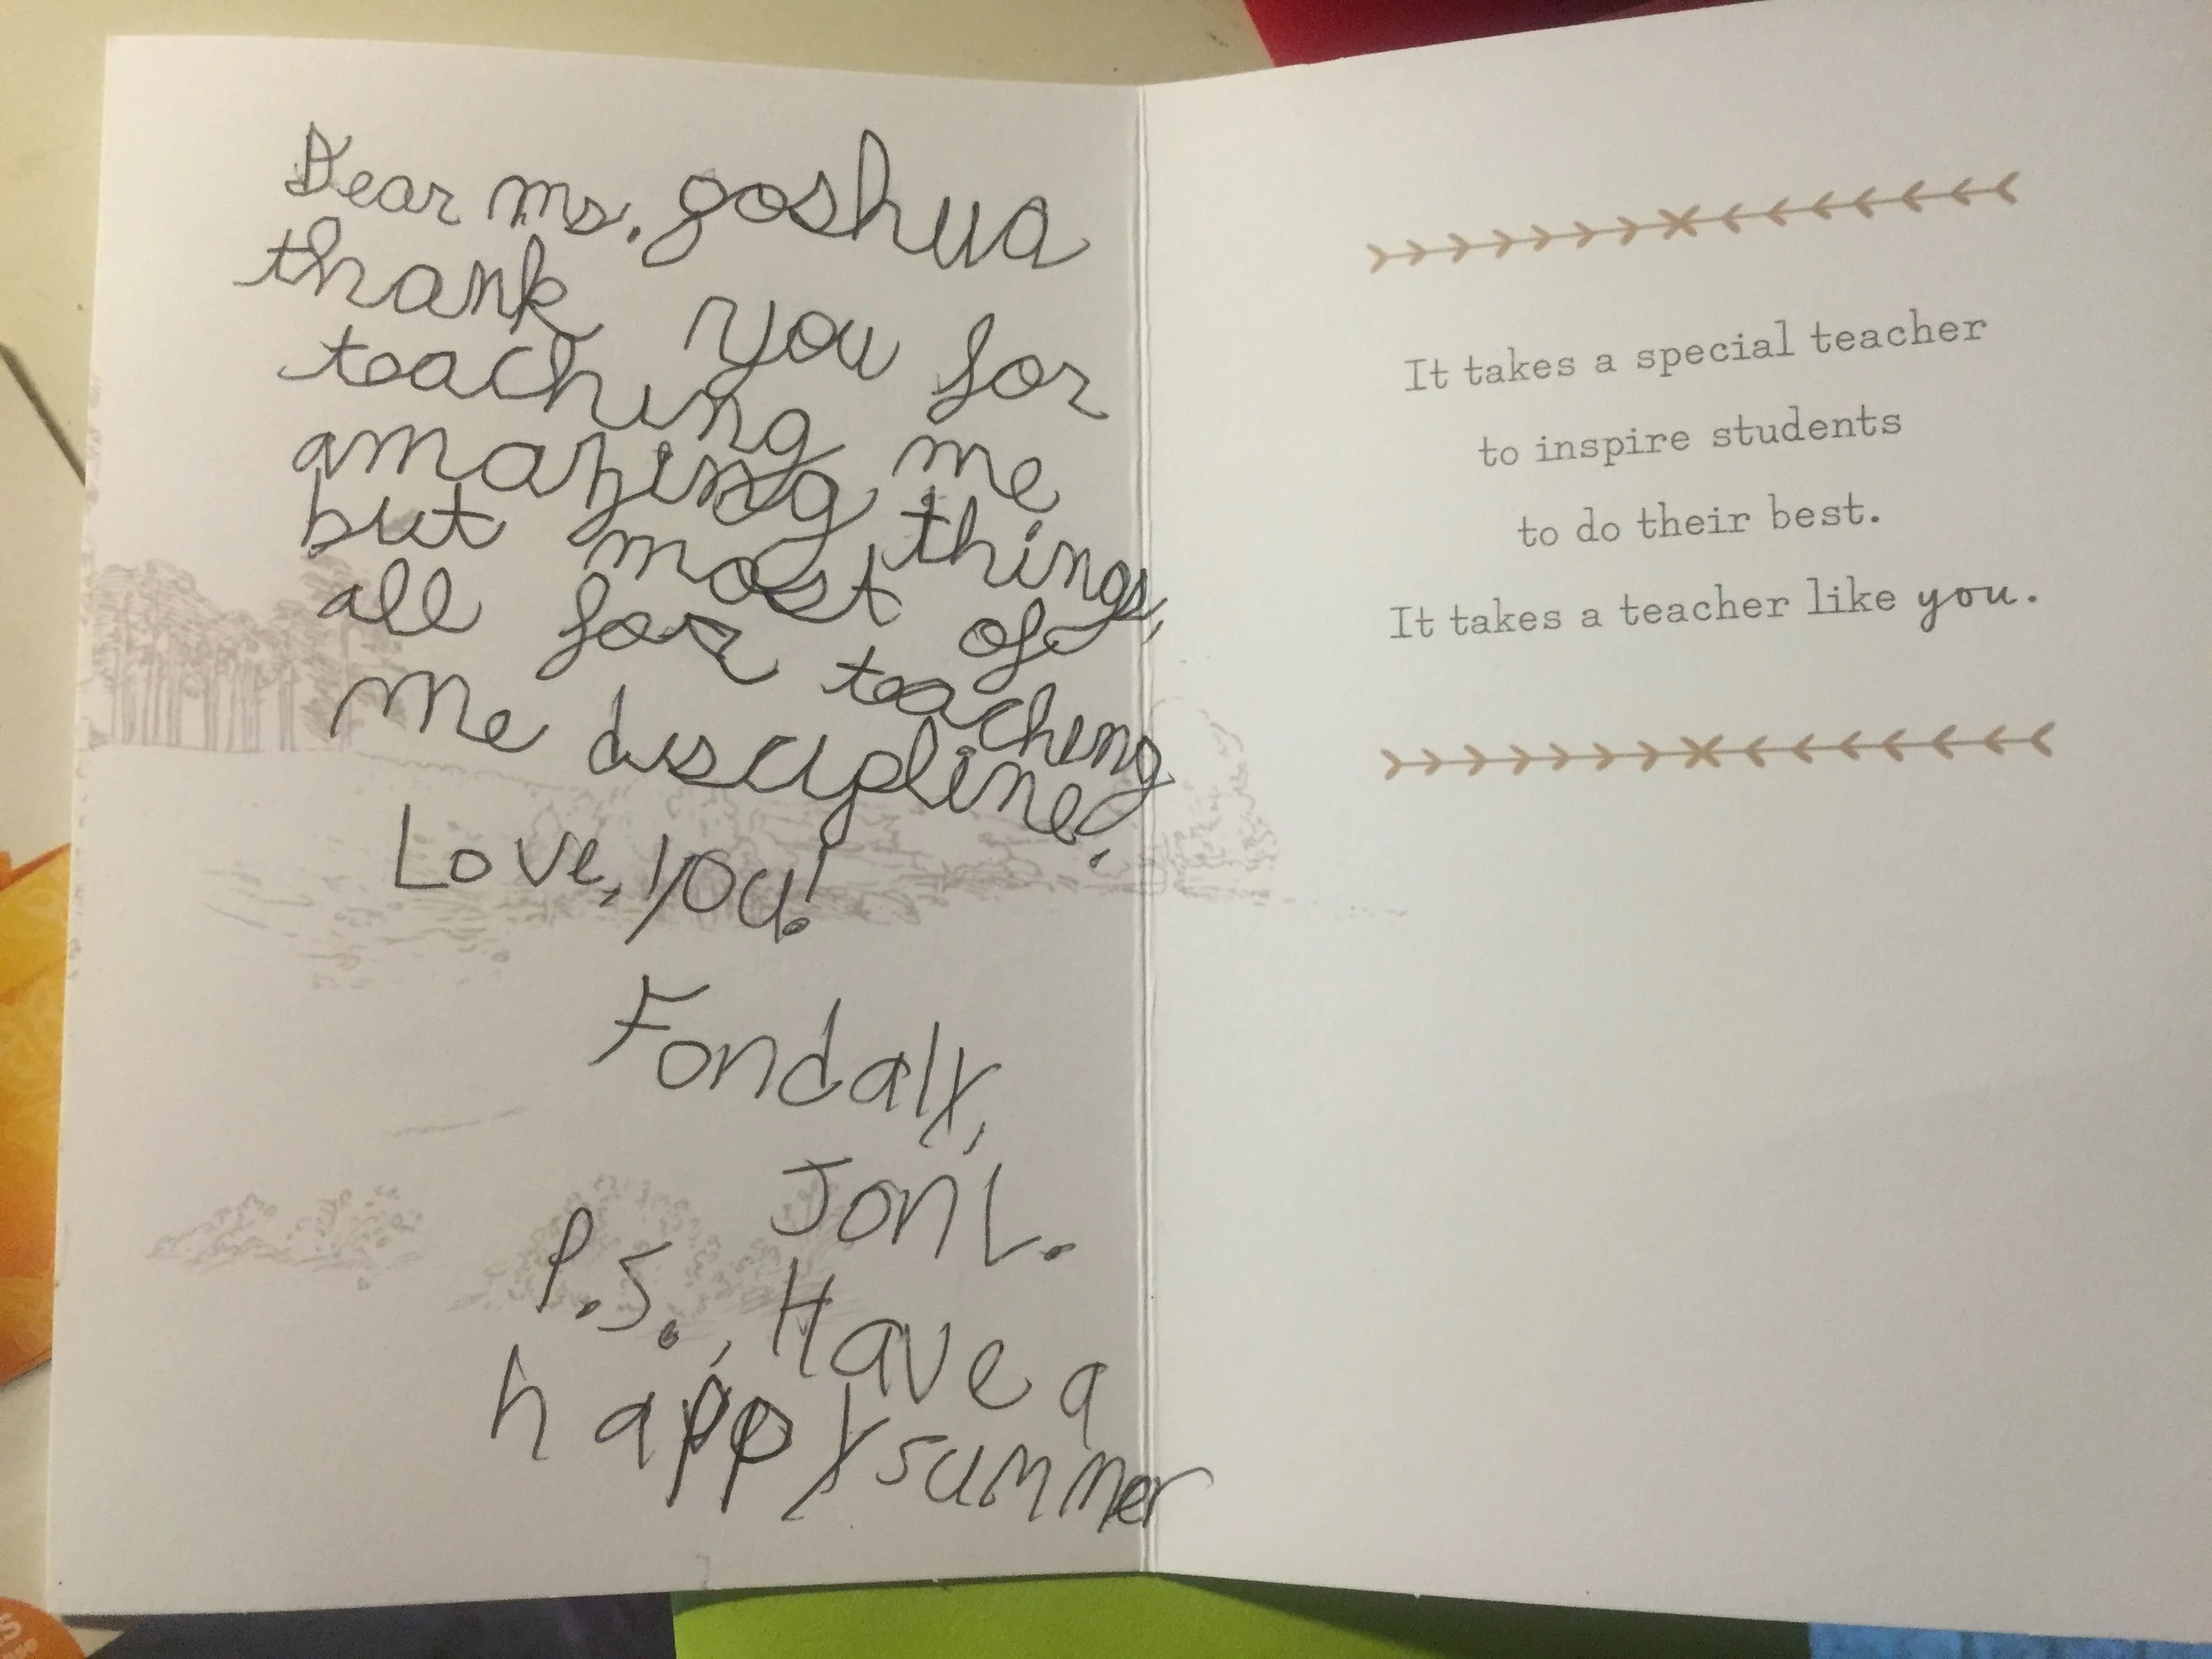 Dear Ms. goshua
thank you for
teaching me
amazing things,
but most of
all for teaching
me discipline!
Love, you!
Fondaly,
Jon L.
P.S., Have a
happy summer
It takes a special teacher
to inspire students
to do their best.
It takes a teacher like you.